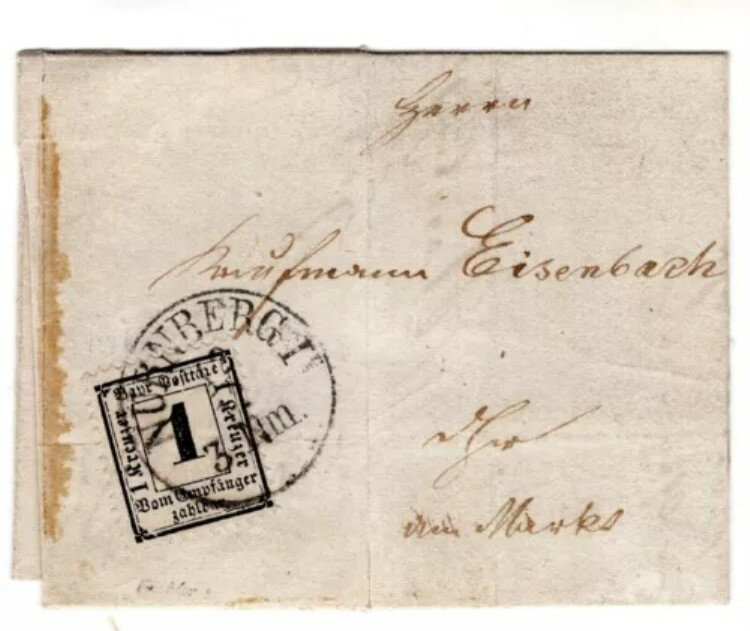 Herrn
Kaufmann Eisenbach
Hier
am Markt
NÜRNBERG I
3 Nm.
Bayr. Posttaxe
1 Kreuzer
1
Kreuzer
Vom Empfänger
zahlbar